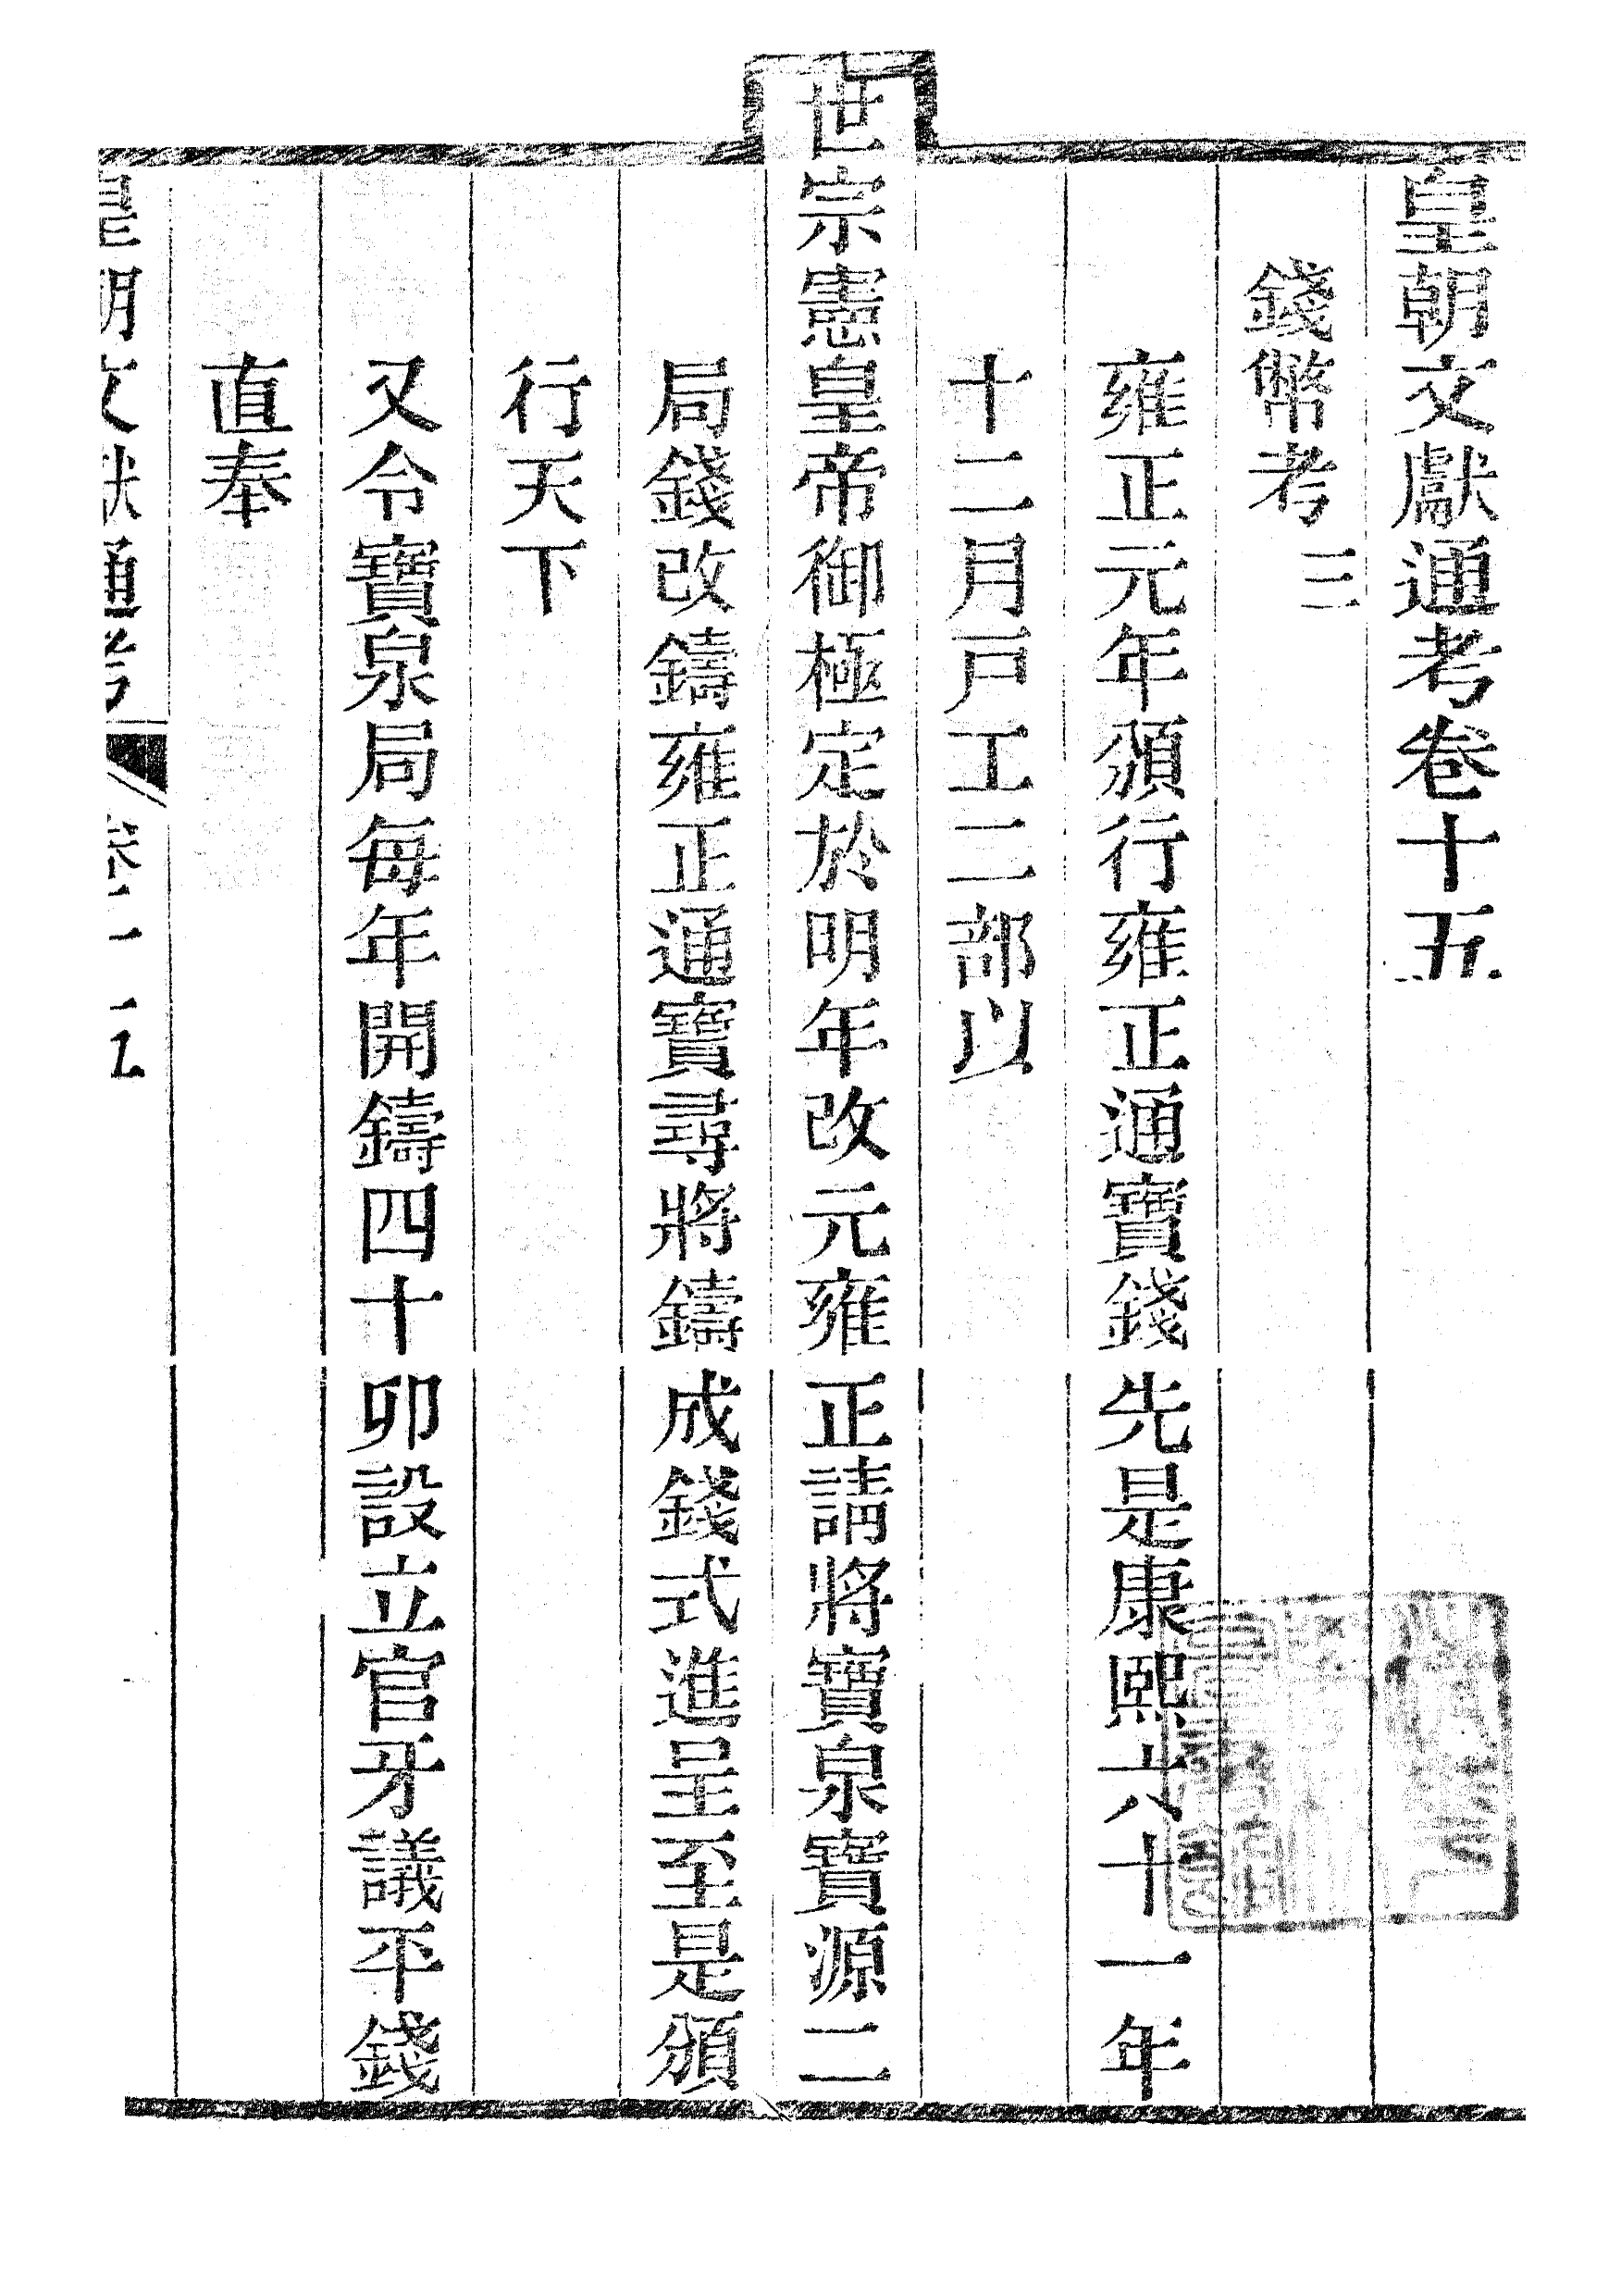 皇朝文獻通考卷十五
錢幣考三
雍正元年頒行雍正通寶錢先是康熙六十一年
十二月戸工二部以
世宗憲皇帝御極定於明年改元雍正請將寶泉寶源二
局錢改鑄雍正通寶尋將鑄成錢式進呈至是頒
行天下
又令寶泉局每年開鑄四十卯設立官牙議平錢
直奉
皇朝文獻通考